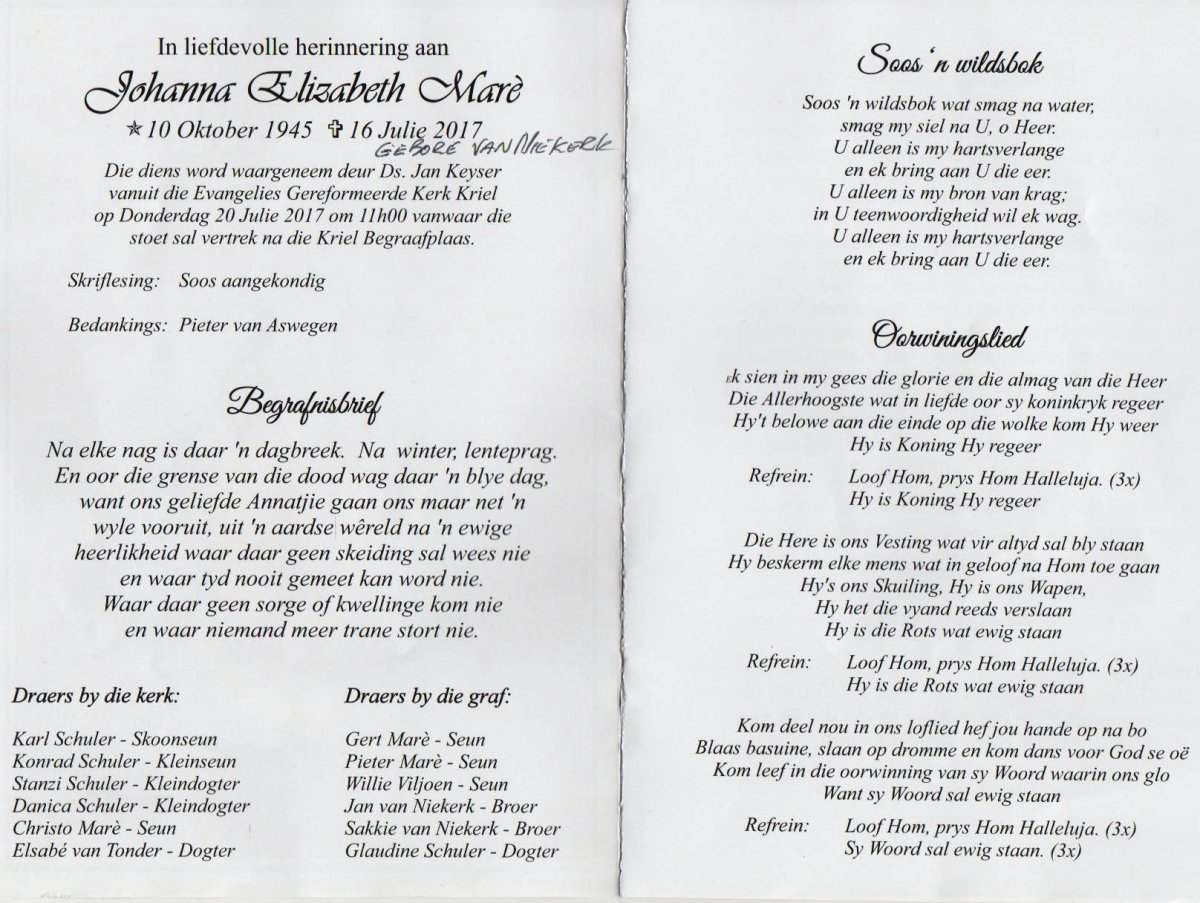 In liefdevolle herinnering aan
Johanna Elizabeth Marè
✯10 Oktober 1945 ✞ 16 Julie 2017
GEBORE VAN NIEKERK
Die diens word waargeneem deur Ds. Jan Keyser
vanuit die Evangelies Gereformeerde Kerk Kriel
op Donderdag 20 Julie 2017 om 11h00 vanwaar die
stoet sal vertrek na die Kriel Begraafplaas.
Skriflesing: Soos aangekondig
Bedankings: Pieter van Aswegen
Begrafnisbrief
Na elke nag is daar 'n dagbreek. Na winter, lenteprag.
En oor die grense van die dood wag daar 'n blye dag,
want ons geliefde Annatjie gaan ons maar net 'n
wyle vooruit, uit 'n aardse wêreld na 'n ewige
heerlikheid waar daar geen skeiding sal wees nie
en waar tyd nooit gemeet kan word nie.
Waar daar geen sorge of kwellinge kom nie
en waar niemand meer trane stort nie.
Draers by die kerk:
Karl Schuler - Skoonseun
Konrad Schuler - Kleinseun
Stanzi Schuler - Kleindogter
Danica Schuler - Kleindogter
Christo Marè - Seun
Elsabé van Tonder - Dogter
Draers by die graf:
Gert Marè - Seun
Pieter Marè - Seun
Willie Viljoen - Seun
Jan van Niekerk - Broer
Sakkie van Niekerk - Broer
Glaudine Schuler - Dogter
Soos 'n wildsbok
Soos 'n wildsbok wat smag na water,
smag my siel na U, o Heer.
U alleen is my hartsverlange
en ek bring aan U die eer.
U alleen is my bron van krag;
in U teenwoordigheid wil ek wag.
U alleen is my hartsverlange
en ek bring aan U die eer.
Oorwiningslied
Ek sien in my gees die glorie en die almag van die Heer
Die Allerhoogste wat in liefde oor sy koninkryk regeer
Hy't belowe aan die einde op die wolke kom Hy weer
Hy is Koning Hy regeer
Refrein: Loof Hom, prys Hom Halleluja. (3x)
Hy is Koning Hy regeer
Die Here is ons Vesting wat vir altyd sal bly staan
Hy beskerm elke mens wat in geloof na Hom toe gaan
Hy's ons Skuiling, Hy is ons Wapen,
Hy het die vyand reeds verslaan
Hy is die Rots wat ewig staan
Refrein: Loof Hom, prys Hom Halleluja. (3x)
Hy is die Rots wat ewig staan
Kom deel nou in ons loflied hef jou hande op na bo
Blaas basuine, slaan op dromme en kom dans voor God se oë
Kom leef in die oorwinning van sy Woord waarin ons glo
Want sy Woord sal ewig staan
Refrein: Loof Hom, prys Hom Halleluja. (3x)
Sy Woord sal ewig staan. (3x)